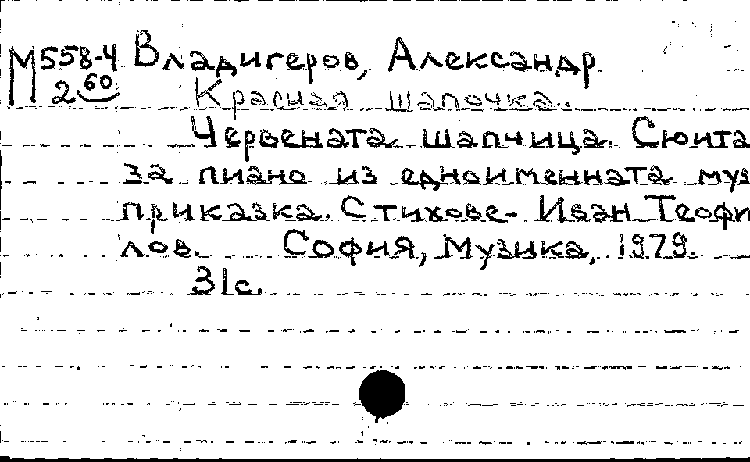 М558-4 Владигеров, Александр
2 60 Красная шапочка.
Червената шапчица. Сюита
за пиано из едноименната муз
приказка. Стихове- Иван Теофи
лов. София, Музика, 1979.
31с.